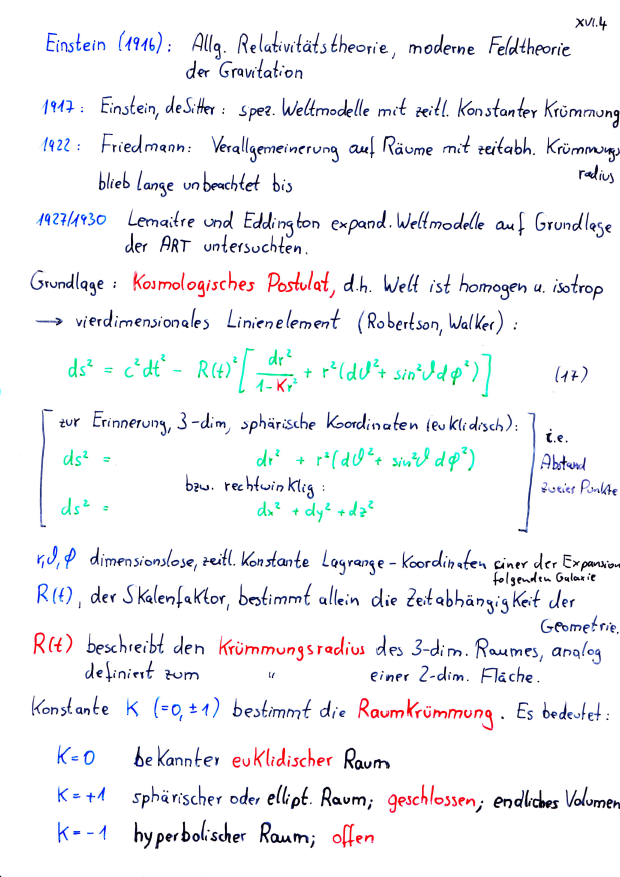 XVI.4
Einstein (1916): Allg. Relativitätstheorie, moderne Feldtheorie
der Gravitation
1917: Einstein, deSitter: spez. Weltmodelle mit zeitl. Konstanter Krümmung
1922: Friedmann: Verallgemeinerung auf Räume mit zeitabh. Krümmungs
radius
blieb lange unbeachtet bis
1927/1930 Lemaitre und Eddington expand. Weltmodelle auf Grundlage
der ART untersuchten.
Grundlage: Kosmologisches Postulat, d.h. Welt ist homogen u. isotrop
→ vierdimensionales Linienelement (Robertson, Walker):
ds² = c²dt² - R(t)² [ dr²/(1-Kr²) + r²(dϑ² + sin²ϑ dφ²) ] (17)
zur Erinnerung, 3-dim, sphärische Koordinaten (euklidisch): i.e.
ds² = dr² + r²(dϑ² + sin²ϑ dφ²) Abstand
bzw. rechtwinklig: zweier Punkte
ds² = dx² + dy² + dz²
r,ϑ,φ dimensionslose, zeitl. Konstante Lagrange-Koordinaten einer der Expansion
folgenden Galaxie
R(t), der Skalenfaktor, bestimmt allein die Zeitabhängigkeit der
Geometrie.
R(t) beschreibt den Krümmungsradius des 3-dim. Raumes, analog
definiert zum " einer 2-dim. Fläche.
Konstante K (=0, ±1) bestimmt die Raumkrümmung. Es bedeutet:
K=0 bekannter euklidischer Raum
K=+1 sphärischer oder ellipt. Raum; geschlossen; endliches Volumen
K=-1 hyperbolischer Raum; offen